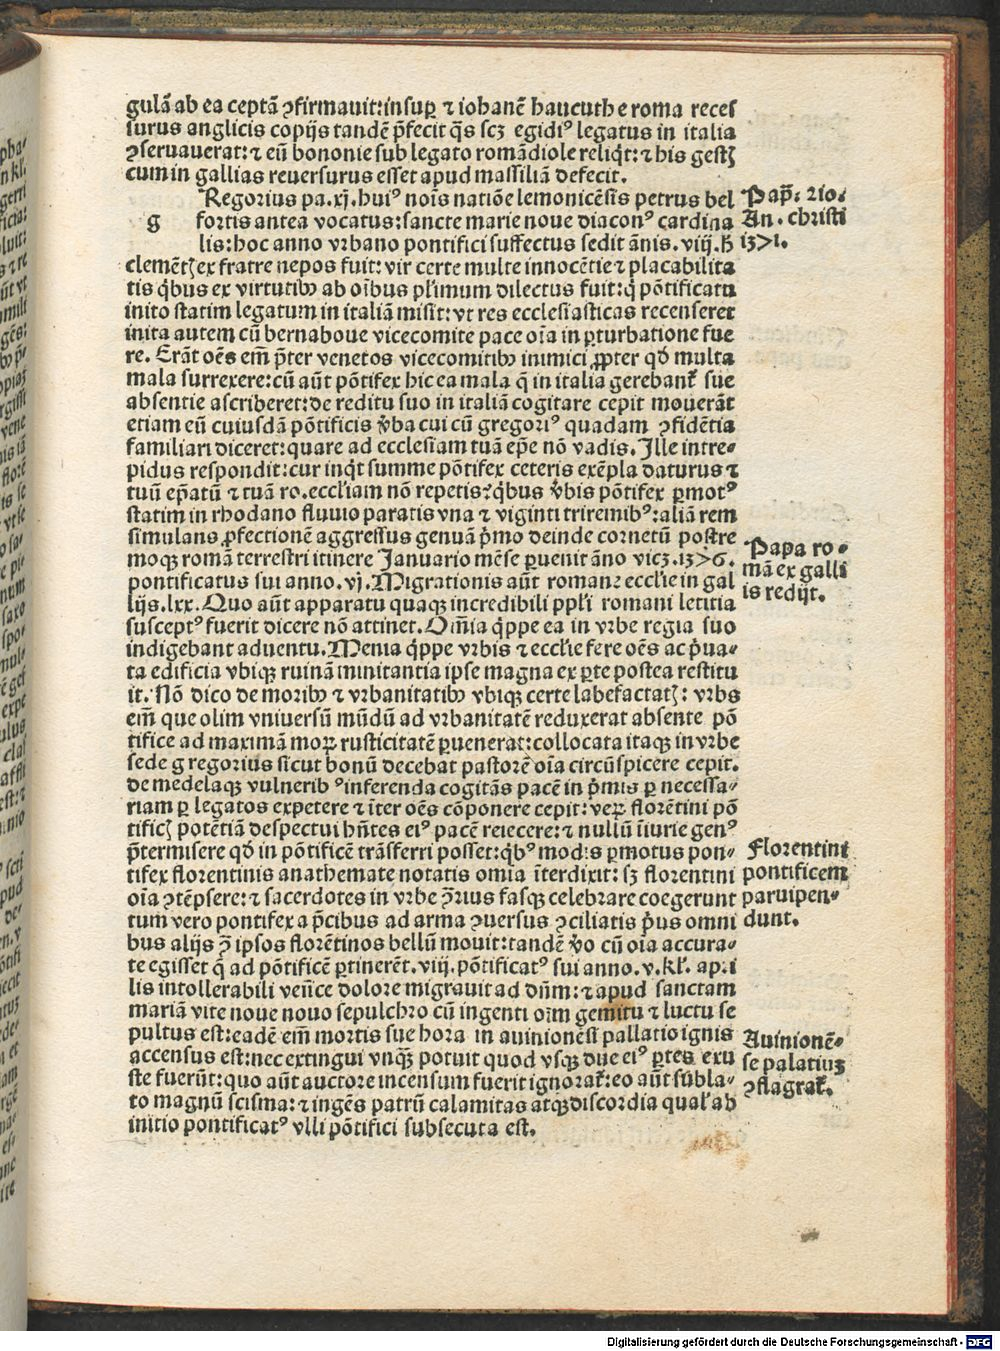 gulã ab ea ceptã ꝯfirmauit:insuꝑ ⁊ iohanẽ haucuth e roma receſ
surus anglicis copijs tandẽ p̃fecit q̃s scʒ egidiꝰ legatus in italia
ꝯseruauerat:⁊ eũ bononie sub legato romãdiole reliqͥt:⁊ his gestꝭ
cum in gallias reuersurus esset apud massiliã defecit.
Regorius pa.xj.huiꝰ nois natiõe lemonicẽsis petrus bel
g fortis antea vocatus:sancte marie noue diaconꝰ cardina
lis:hoc anno vrbano pontifici suffectus sedit ãnis.viij.h̃
clemẽtꝭ ex fratre nepos fuit: vir certe multe innocẽtie ⁊ placabilita
tis qͥbus ex virtutibꝫ ab oĩbus pl̃imum dilectus fuit:qͥ põtificatu
inito statim legatum in italiã misit: vt res ecclesiasticas recenseret
inita autem cũ bernaboue vicecomite pace oĩa in ꝑturbatione fue
re. Erãt oẽs em̃ p̃ter venetos vicecomitibꝫ inimici ꝓpter qd̃ multa
mala surrexere:cũ aũt põtifex hic ea mala q̃ in italia gerebant̃ sue
absentie ascriberet:de reditu suo in italiã cogitare cepit mouerãt
etiam eũ cuiusdã põtificis v̓ba cui cũ gregoriꝰ quadam ꝯfidẽtia
familiari diceret:quare ad ecclesiam tuã ep̃e nõ vadis. Ille intre⸗
pidus respondit:cur inqͥt summe põtifex ceteris exẽpla daturus ⁊
tuũ ep̃atũ ⁊ tuã ro.eccl̃iam nõ repetis?qͥbus v̓bis põtifex ꝑmotꝰ
statim in rhodano fluuio paratis vna ⁊ viginti triremibꝰ:aliã rem
simulans ꝓfectionẽ aggressus genuã pͥmo deinde cornetũ postre
moqꝫ romã terrestri itinere Januario mẽse ꝑuenit ãno vicꝫ.13>6.
pontificatus sui anno.vj.Migrationis aũt romane eccl̃ie in gal
lijs.lxx.Quo aũt apparatu quaqꝫ incredibili ppl̃i romani letitia
susceptꝰ fuerit dicere nõ attinet.Om̃ia qͥppe ea in vrbe regia suo
indigebant aduentu.Menia qͥppe vrbis ⁊ eccl̃ie fere oẽs ac pͥua⸗
ta edificia vbiqꝫ ruinã minitantia ipse magna ex ꝑte postea restitu
it. Nõ dico de moribꝫ ⁊ vrbanitatibꝫ vbiqꝫ certe labefactatꝭ: vrbs
em̃ que olim vniuersũ mũdũ ad vrbanitatẽ reduxerat absente põ
tifice ad maximã moꝝ rusticitatẽ ꝑuenerat:collocata itaqꝫ in vrbe
sede g regorius sicut bonũ decebat pastorẽ oĩa circũspicere cepit.
de medelaqꝫ vulnerib ꝰinferenda cogitãs pacẽ in pͥmis ꝑ necessa⸗
riam ꝑ legatos expetere ⁊ ĩter oẽs cõponere cepit: veꝝ florẽtini põ
tificꝭ potẽtiã despectui hñtes eiꝰ pacẽ reiecere:⁊ nullũ ĩiurie genꝰ
p̃termisere qd̃ in põtificẽ trãsferri posset:qͥbꝰ modis ꝑmotus pon⸗
tifex florentinis anathemate notatis omia ĩterdixit: sꝫ florentini
oĩa ꝯtẽpsere:⁊ sacerdotes in vrbe ꝯ̃rius fasqꝫ celebrare coegerunt
tum vero pontifex a p̃cibus ad arma ꝯuersus ꝯciliatis pͥus omni
bus alijs ꝯ̃ ipsos florẽtinos bellũ mouit:tandẽ v̓o cũ oĩa accura⸗
te egisset q̃ ad põtificẽ ꝑtinerẽt.viij.põtificatꝰ sui anno.v.kl̃. apri
lis intollerabili vesice dolore migrauit ad dñm:⁊ apud sanctam
mariã vite noue nouo sepulchro cũ ingenti oĩm gemitu ⁊ luctu se
pultus est:eadẽ em̃ mortis sue hora in auinionẽsi pallatio ignis
accensus est:nec extingui vnqꝫ potuit quod vsqꝫ due eiꝰ ꝑtes exu
ste fuerũt:quo aũt auctore incensum fuerit ignorat̃:eo aũt subla⸗
to magnũ scisma:⁊ ingẽs patrũ calamitas atqꝫ discordia qual̃ ab
initio pontificatꝰ vlli põtifici subsecuta est.
Pap̃: 210.
An. christi
13>1.
Papa ro⸗
mã ex galli
is redijt.
Florentini
pontificem
paruipen⸗
dunt.
Auinionẽ⸗
se palatiuʒ
ꝯflagrat̃.
Digitalisierung gefördert durch die Deutsche Forschungsgemeinschaft - DFG